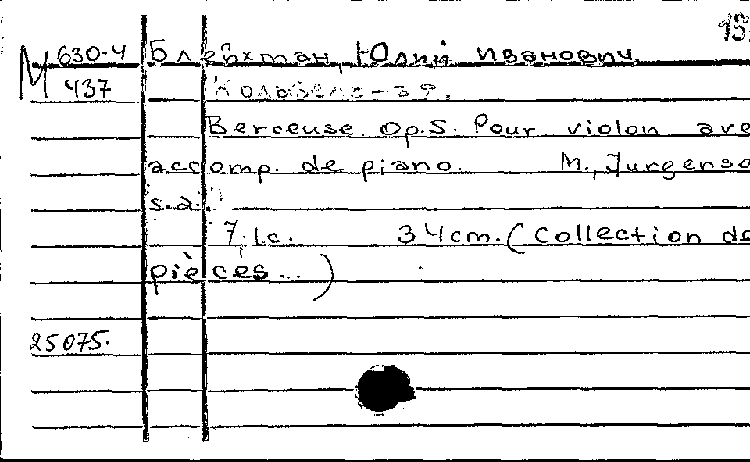 М 630-4 Блейхман, Юлий Иванович
437
Berceuse. Op.5. Pour violon ave
accomp. de piano. M., Jurgenso
s.a.
7, 1c. 34cm. (Collection de
pièces...)
25075.